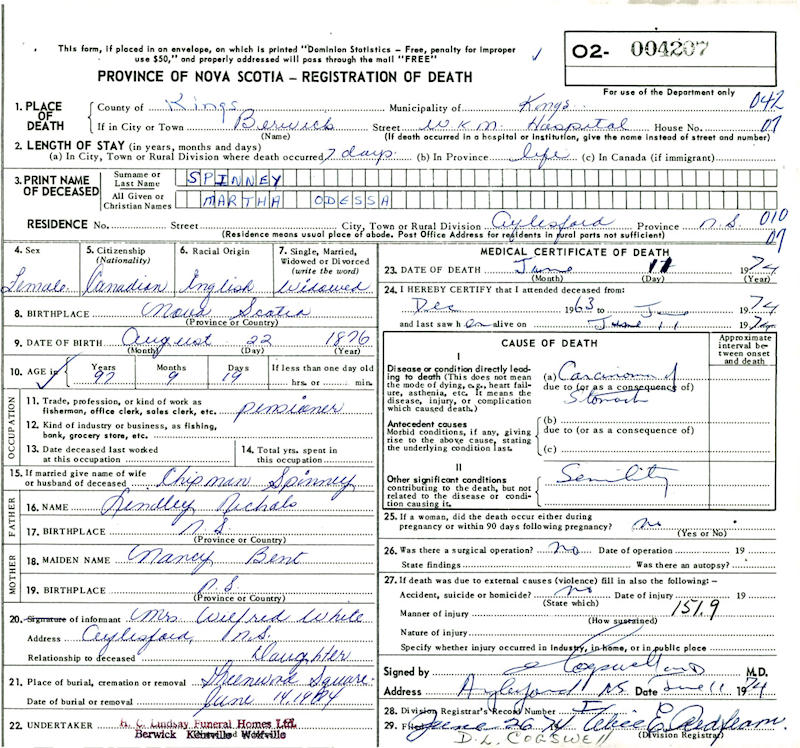 This form, if placed in an envelope, on which is printed "Dominion Statistics – Free, penalty for improper
use $50," and properly addressed will pass through the mail "FREE"
O2- 004207
PROVINCE OF NOVA SCOTIA – REGISTRATION OF DEATH
For use of the Department only
1. PLACE OF DEATH County of Kings Municipality of Kings 042
If in City or Town Berwick Street W K M Hospital House No. 07
(Name) (If death occurred in a hospital or Institution, give the name instead of street and number)
2. LENGTH OF STAY (in years, months and days)
(a) In City, Town or Rural Division where death occurred 7 days (b) In Province life (c) In Canada (if immigrant)
3. PRINT NAME OF DECEASED Surname or Last Name SPINNEY
All Given or Christian Names MARTHA ODESSA
RESIDENCE No. Street City, Town or Rural Division Aylesford Province N.S. 010
(Residence means usual place of abode. Post Office Address for residents in rural parts not sufficient) 09
4. Sex 5. Citizenship (Nationality) 6. Racial Origin 7. Single, Married, Widowed or Divorced (write the word)
Female Canadian English Widowed
8. BIRTHPLACE Nova Scotia
(Province or Country)
9. DATE OF BIRTH August 22 1876
(Month) (Day) (Year)
10. AGE in Years Months Days If less than one day old
97 9 19 hrs. or min.
OCCUPATION
11. Trade, profession, or kind of work as
fisherman, office clerk, sales clerk, etc. pensioner
12. Kind of industry or business, as fishing,
bank, grocery store, etc.
13. Date deceased last worked at this occupation 14. Total yrs. spent in this occupation
15. If married give name of wife or husband of deceased Chipman Spinney
FATHER
16. NAME Hendley Nichols
17. BIRTHPLACE N.S
(Province or Country)
MOTHER
18. MAIDEN NAME Nancy Bent
19. BIRTHPLACE N.S.
(Province or Country)
20. Signature of informant Mrs Wilfred White
Address Aylesford, N.S.
Relationship to deceased Daughter
21. Place of burial, cremation or removal Greenwood Square
Date of burial or removal June 14, 1974
22. UNDERTAKER H. C. Lindsay Funeral Homes Ltd.
Berwick Kentville Wolfville
MEDICAL CERTIFICATE OF DEATH
23. DATE OF DEATH June 11 1974
(Month) (Day) (Year)
24. I HEREBY CERTIFY that I attended deceased from:
Dec 1963 to June 1974
and last saw her alive on June 11 1974
CAUSE OF DEATH
Approximate interval between onset and death
I
Disease or condition directly leading to death (This does not mean the mode of dying, e.g., heart failure, asthenia, etc. It means the disease, injury, or complication which caused death.)
(a) Carcinoma of
due to (or as a consequence of)
Stomach
Antecedent causes
Morbid conditions, if any, giving rise to the above cause, stating the underlying condition last
(b)
due to (or as a consequence of)
(c)
II
Other significant conditions
contributing to the death, but not related to the disease or condition causing it.
Senility
25. If a woman, did the death occur either during
pregnancy or within 90 days following pregnancy? no
(Yes or No)
26. Was there a surgical operation? no Date of operation 19
State findings Was there an autopsy?
27. If death was due to external causes (violence) fill in also the following:–
Accident, suicide or homicide? no Date of injury 19
(State which)
Manner of injury 151.9
(How sustained)
Nature of injury
Specify whether injury occurred in industry, in home, or in public place
Signed by Cogswell M.D.
Address Aylesford NS Date June 11 1974
28. Division Registrar's Record Number
29. Filed June 26 74
(Division Registrar)
D.L. COGSWELL